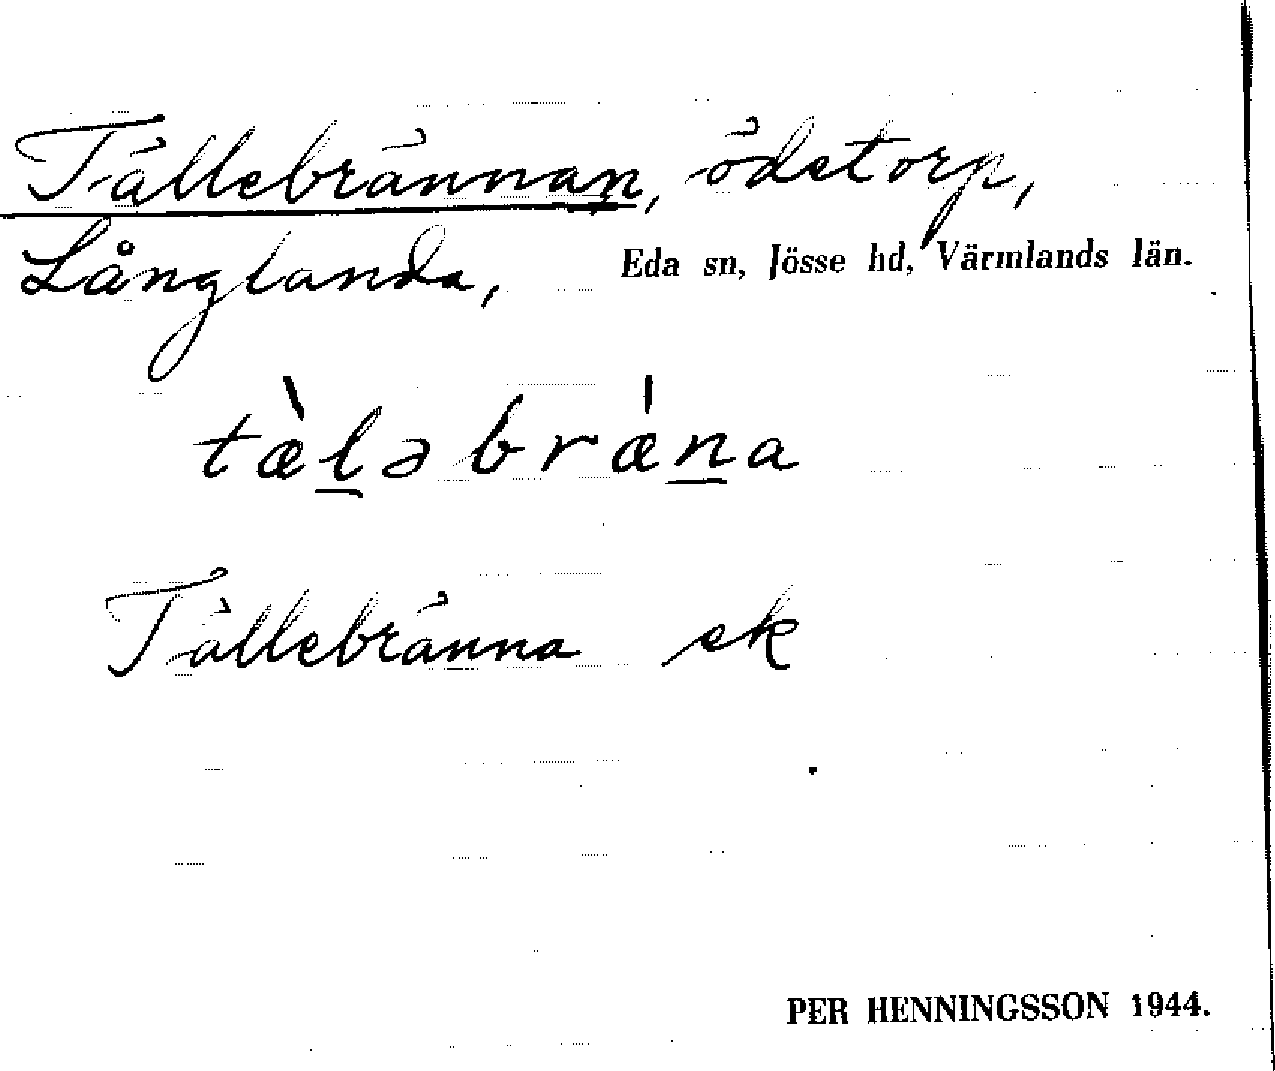 Tällebrännan, ödetorp,
Långlanda, Eda sn, Jösse hd, Värmlands län.
tæ̀l̲əbrǽn̲a
Tällebränna ek
PER HENNINGSSON 1944.